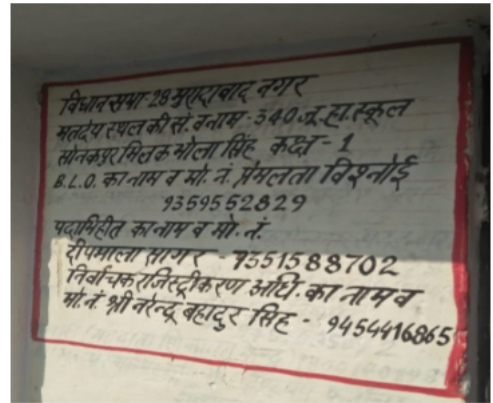 विधानसभा-28 मुरादाबाद नगर
मतदेय स्थल की सं. व नाम - 340 जू. हा. स्कूल
सोनकपुर मिलक भोला सिंह कक्ष - 1
B.L.O. का नाम व मो. नं. प्रेमलता विश्नोई
9359552829
पदाभिहीत का नाम व मो. नं.
दीपमाला सागर - 9351588702
निर्वाचक रजिस्ट्रीकरण अधि. का नाम व
मो. नं. श्री नरेन्द्र बहादुर सिंह - 9454416865